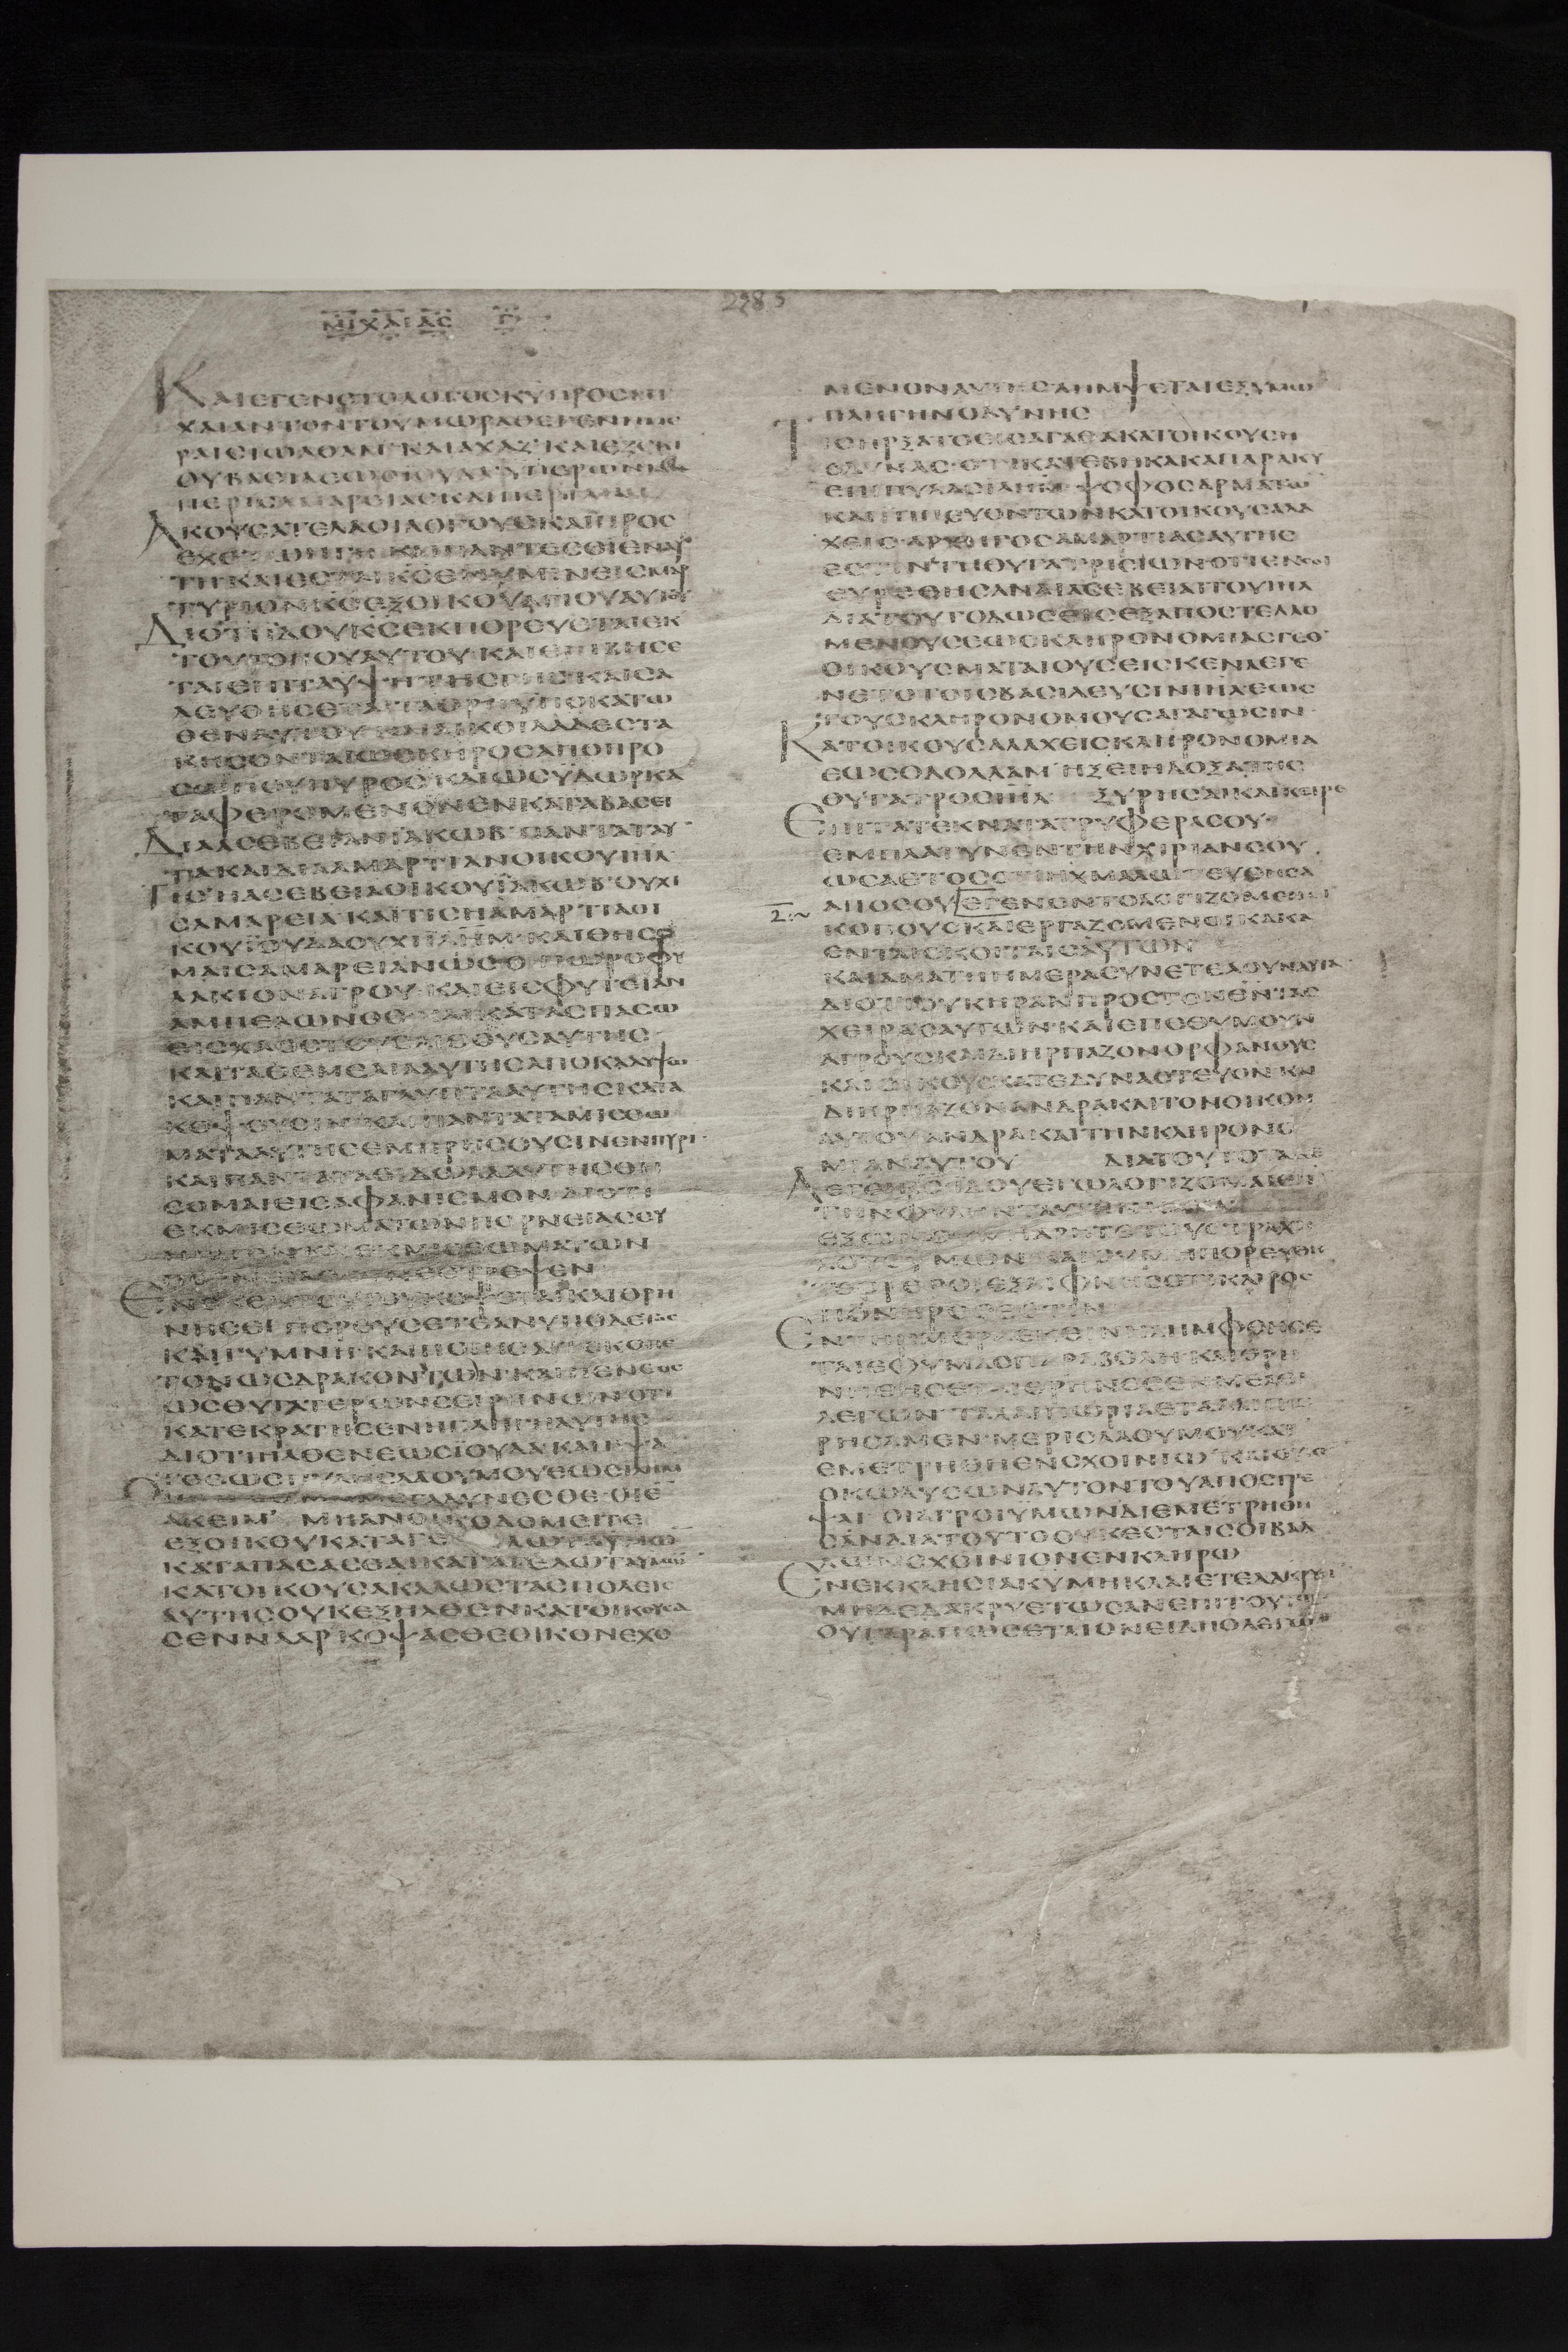 ΜΙΧΑΙΑΣ Γ
ΚΑΙΕΓΕΝΕΤΟΛΟΓΟΣΚΥΠΡΟΣΜΙ
ΧΑΙΑΝΤΟΝΤΟΥΜΩΡΑΣΘΕΙΕΝΗΜΕ
ΡΑΙΣΙΩΑΘΑΜ ΚΑΙΑΧΑΖ ΚΑΙΕΖΕΚΙ
ΟΥΒΑΣΙΛΕΩΣΙΟΥΔΑ ΥΠΕΡΩΝ
ΠΕΡΙΣΑΜΑΡΕΙΑΣΚΑΙΠΕΡΙ
ΑΚΟΥΣΑΤΕΛΑΟΙΛΟΓΟΥΣΚΑΙΠΡΟΣ
ΕΧΕΤΩΗΓΗ ΚΑΙΠΑΝΤΕΣΟΙΕΝΑΥ
ΤΗΚΑΙΕΣΤΑΙΚΣΕΝΥΜΙΝΕΙΣΜΑΡ
ΤΥΡΙΟΝΚΣΕΞΟΙΚΟΥΑΓΙΟΥΑΥΤΟΥ
ΔΙΟΤΙΙΔΟΥΚΣΕΚΠΟΡΕΥΕΤΑΙΕΚ
ΤΟΥΤΟΠΟΥΑΥΤΟΥ ΚΑΙΕΠΙΒΗΣΕ
ΤΑΙΕΠΙΤΑΥΨΗΤΗΣΓΗΣ ΚΑΙΣΑ
ΛΕΥΘΗΣΕΤΑΙΤΑΟΡΗΥΠΟΚΑΤΩ
ΘΕΝΑΥΤΟΥ ΚΑΙΑΙΚΟΙΛΑΔΕΣΤΑ
ΚΗΣΟΝΤΑΙΩΣΚΗΡΟΣΑΠΟΠΡΟ
ΣΩΠΟΥΠΥΡΟΣ ΚΑΙΩΣΫΔΩΡΚΑ
ΤΑΦΕΡΟΜΕΝΟΝΕΝΚΑΤΑΒΑΣΕΙ
ΔΙΑΑΣΕΒΕΙΑΝΙΑΚΩΒ ΠΑΝΤΑΤΑΥ
ΤΑΚΑΙΔΙΑΑΜΑΡΤΙΑΝΟΙΚΟΥΙΗΛ
ΤΙΣΗΑΣΕΒΕΙΑΟΙΚΟΥΪΑΚΩΒ ΟΥΧΙ
ΣΑΜΑΡΕΙΑ ΚΑΙΤΙΣΗΑΜΑΡΤΙΑΟΙ
ΚΟΥΪΟΥΔΑΟΥΧΙΙΛΗΜ ΚΑΙΘΗΣΟ
ΜΑΙΣΑΜΑΡΕΙΑΝΩΣΟΠΩΡΟΦΥ
ΛΑΚΙΟΝΑΓΡΟΥ ΚΑΙΕΙΣΦΥΤΕΙΑΝ
ΑΜΠΕΛΩΝΟΣ ΚΑΙΚΑΤΑΣΠΑΣΩ
ΕΙΣΧΑΟΣΤΟΥΣΛΙΘΟΥΣΑΥΤΗΣ
ΚΑΙΤΑΘΕΜΕΛΙΑΑΥΤΗΣΑΠΟΚΑΛΥΨΩ
ΚΑΙΠΑΝΤΑΤΑΓΛΥΠΤΑΑΥΤΗΣΚΑΤΑ
ΚΟΨΟΥΣΙΝ ΚΑΙΠΑΝΤΑΤΑΜΙΣΘΩ
ΜΑΤΑΑΥΤΗΣΕΜΠΡΗΣΟΥΣΙΝΕΝΠΥΡΙ
ΚΑΙΠΑΝΤΑΤΑΕΙΔΩΛΑΑΥΤΗΣΘΗ
ΣΟΜΑΙΕΙΣΑΦΑΝΙΣΜΟΝ ΔΙΟΤΙ
ΕΚΜΙΣΘΩΜΑΤΩΝΠΟΡΝΕΙΑΣΣΥ
ΕΚΜΙΣΘΩΜΑΤΩΝ
ΚΟΨΕΤΑΙΚΑΙΘΡΗ
ΝΗΣΕΙ ΠΟΡΕΥΣΕΤΑΙΑΝΥΠΟΔΕΤΟΣ
ΚΑΙΓΥΜΝΗ ΚΑΙΠΟΙΗΣΕΤΑΙΚΟΠΕ
ΤΟΝΩΣΔΡΑΚΟΝΤΩΝ ΚΑΙΠΕΝΘΟΣ
ΩΣΘΥΓΑΤΕΡΩΝΣΕΙΡΗΝΩΝΟΤΙ
ΚΑΤΕΚΡΑΤΗΣΕΝΗΠΛΗΓΗΑΥΤΗΣ
ΔΙΟΤΙΗΛΘΕΝΕΩΣΙΟΥΔΑ ΚΑΙΗΨΑ
ΤΟΕΩΣΠΥΛΗΣΛΑΟΥΜΟΥΕΩΣΙΛΗΜ
ΜΕΓΑΛΥΝΕΣΘΕ ΟΙΕ
ΑΚΕΙΜ ΜΗΑΝΟΙΚΟΔΟΜΕΙΤΕ
ΕΞΟΙΚΟΥΚΑΤΑΓΕΛΩΤΑ
ΚΑΤΑΠΑΣΑΣΘΑΙΚΑΤΑΓΕΛΩΤΑΥΜΩΝ
ΚΑΤΟΙΚΟΥΣΑΚΑΛΩΣΤΑΣΠΟΛΕΙΣ
ΑΥΤΗΣΟΥΚΕΞΗΛΘΕΝΚΑΤΟΙΚΟΥΣΑ
ΣΕΝΝΑΑΡ ΚΟΨΑΣΘΕΟΙΚΟΝΕΧΟ
ΜΕΝΟΝΑΥΤΗΣΛΗΜΨΕΤΑΙΕΞΥΜΩ
ΠΛΗΓΗΝΟΔΥΝΗΣ
ΤΙΣΗΡΞΑΤΟΕΙΣΑΓΑΘΑΚΑΤΟΙΚΟΥΣΗ
ΟΔΥΝΑΣ ΟΤΙΚΑΤΕΒΗΚΑΚΑΠΑΡΑΚΥ
ΕΠΙΠΥΛΑΣΙΛΗΜ ΨΟΦΟΣΑΡΜΑΤΩ
ΚΑΙΙΠΠΕΥΟΝΤΩΝΚΑΤΟΙΚΟΥΣΑΛΑ
ΧΕΙΣ ΑΡΧΗΓΟΣΑΜΑΡΤΙΑΣΑΥΤΗΣ
ΕΣΤΙΝΤΗΘΥΓΑΤΡΙΣΙΩΝ ΟΤΙΕΝΣΟΙ
ΕΥΡΕΘΗΣΑΝΑΙΑΣΕΒΕΙΑΙΤΟΥΙΗΛ
ΔΙΑΤΟΥΤΟΔΩΣΕΙΣΕΞΑΠΟΣΤΕΛΛΟ
ΜΕΝΟΥΣΕΩΣΚΛΗΡΟΝΟΜΙΑΣΓΕΘ
ΟΙΚΟΥΣΜΑΤΑΙΟΥΣΕΙΣΚΕΝΑΕΓΕ
ΝΕΤΟΤΟΙΣΒΑΣΙΛΕΥΣΙΝΙΗΛΕΩΣ
ΤΟΥΣΚΛΗΡΟΝΟΜΟΥΣΑΓΑΓΩΣΙΝ
ΚΑΤΟΙΚΟΥΣΑΛΑΧΕΙΣΚΛΗΡΟΝΟΜΙΑ
ΕΩΣΟΔΟΛΛΑΜ ΗΞΕΙΗΔΟΞΑΤΗΣ
ΘΥΓΑΤΡΟΣΙΗΛ ΞΥΡΗΣΑΙΚΑΙΚΕΙΡΕ
ΕΠΙΤΑΤΕΚΝΑΤΑΤΡΥΦΕΡΑΣΟΥ
ΕΜΠΛΑΤΥΝΕΝΤΗΝΧΙΡΙΑΝΣΟΥ
ΩΣΑΕΤΟΣΟΤΙΗΧΜΑΛΩΤΕΥΘΗΣΑ
ΑΠΟΣΟΥΕΓΕΝΟΝΤΟΛΟΓΙΖΟΜΕΝΟΙ
ΚΟΠΟΥΣΚΑΙΕΡΓΑΖΟΜΕΝΟΙΚΑΚΑ
ΕΝΤΑΙΣΚΟΙΤΑΙΣΑΥΤΩΝ
ΚΑΙΑΜΑΤΗΗΜΕΡΑΣΥΝΕΤΕΛΟΥΝΑΥΤΑ
ΔΙΟΤΙΟΥΚΗΡΑΝΠΡΟΣΤΟΝΘΝΤΑΣ
ΧΕΙΡΑΣΑΥΤΩΝ ΚΑΙΕΠΕΘΥΜΟΥΝ
ΑΓΡΟΥΣΚΑΙΔΙΗΡΠΑΖΟΝΟΡΦΑΝΟΥΣ
ΚΑΙΟΙΚΟΥΣΚΑΤΕΔΥΝΑΣΤΕΥΟΝ ΚΑΙ
ΔΙΗΡΠΑΖΟΝΑΝΔΡΑΚΑΙΤΟΝΟΙΚΟΝ
ΑΥΤΟΥΑΝΔΡΑΚΑΙΤΗΝΚΛΗΡΟΝΟ
ΜΙΑΝΑΥΤΟΥ ΔΙΑΤΟΥΤΟΤΑΔΕ
ΛΕΓΕΙΚΣΙΔΟΥΕΓΩΛΟΓΙΖΟΜΑΙΕΠΙ
ΤΗΝΦΥΛΗΝΤΑΥΤΗΝΚΑΚΑ
ΕΞΩΝΟΥΜΗΑΡΗΤΕΤΟΥΣΤΡΑΧΗ
ΛΟΥΣΥΜΩΝ ΚΑΙΟΥΜΗΠΟΡΕΥΘΗ
ΤΕΟΡΘΟΙΕΞΑΙΦΝΗΣΟΤΙΚΑΙΡΟΣ
ΠΟΝΗΡΟΣΕΣΤΙΝ
ΕΝΤΗΗΜΕΡΑΕΚΕΙΝΗΛΗΜΦΘΗΣΕ
ΤΑΙΕΦΥΜΑΣΠΑΡΑΒΟΛΗ ΚΑΙΘΡΗ
ΝΗΘΗΣΕΤΑΙΘΡΗΝΟΣΕΝΜΕΛΕΙ
ΛΕΓΩΝ ΤΑΛΑΙΠΩΡΙΑΕΤΑΛΑΙΠΩ
ΡΗΣΑΜΕΝ ΜΕΡΙΣΛΑΟΥΜΟΥΚΑΤ
ΕΜΕΤΡΗΘΗΕΝΣΧΟΙΝΙΩ ΚΑΙΟΥΚ
ΟΚΩΛΥΣΩΝΑΥΤΟΝΤΟΥΑΠΟΣΤΡΕ
ΨΑΙ ΟΙΑΓΡΟΙΫΜΩΝΔΙΕΜΕΤΡΗΘΗ
ΣΑΝΔΙΑΤΟΥΤΟΟΥΚΕΣΤΑΙΣΟΙΒΑΛ
ΛΩΝΣΧΟΙΝΙΟΝΕΝΚΛΗΡΩ
ΕΝΕΚΚΛΗΣΙΑΚΥΜΗΚΛΑΙΕΤΕΔΑΚΡΥΣΙ
ΜΗΔΕΔΑΚΡΥΕΤΩΣΑΝΕΠΙΤΟΥΤΟΙΣ
ΟΥΓΑΡΑΠΩΣΕΤΑΙΟΝΕΙΔΗΟΛΕΓΩΝ